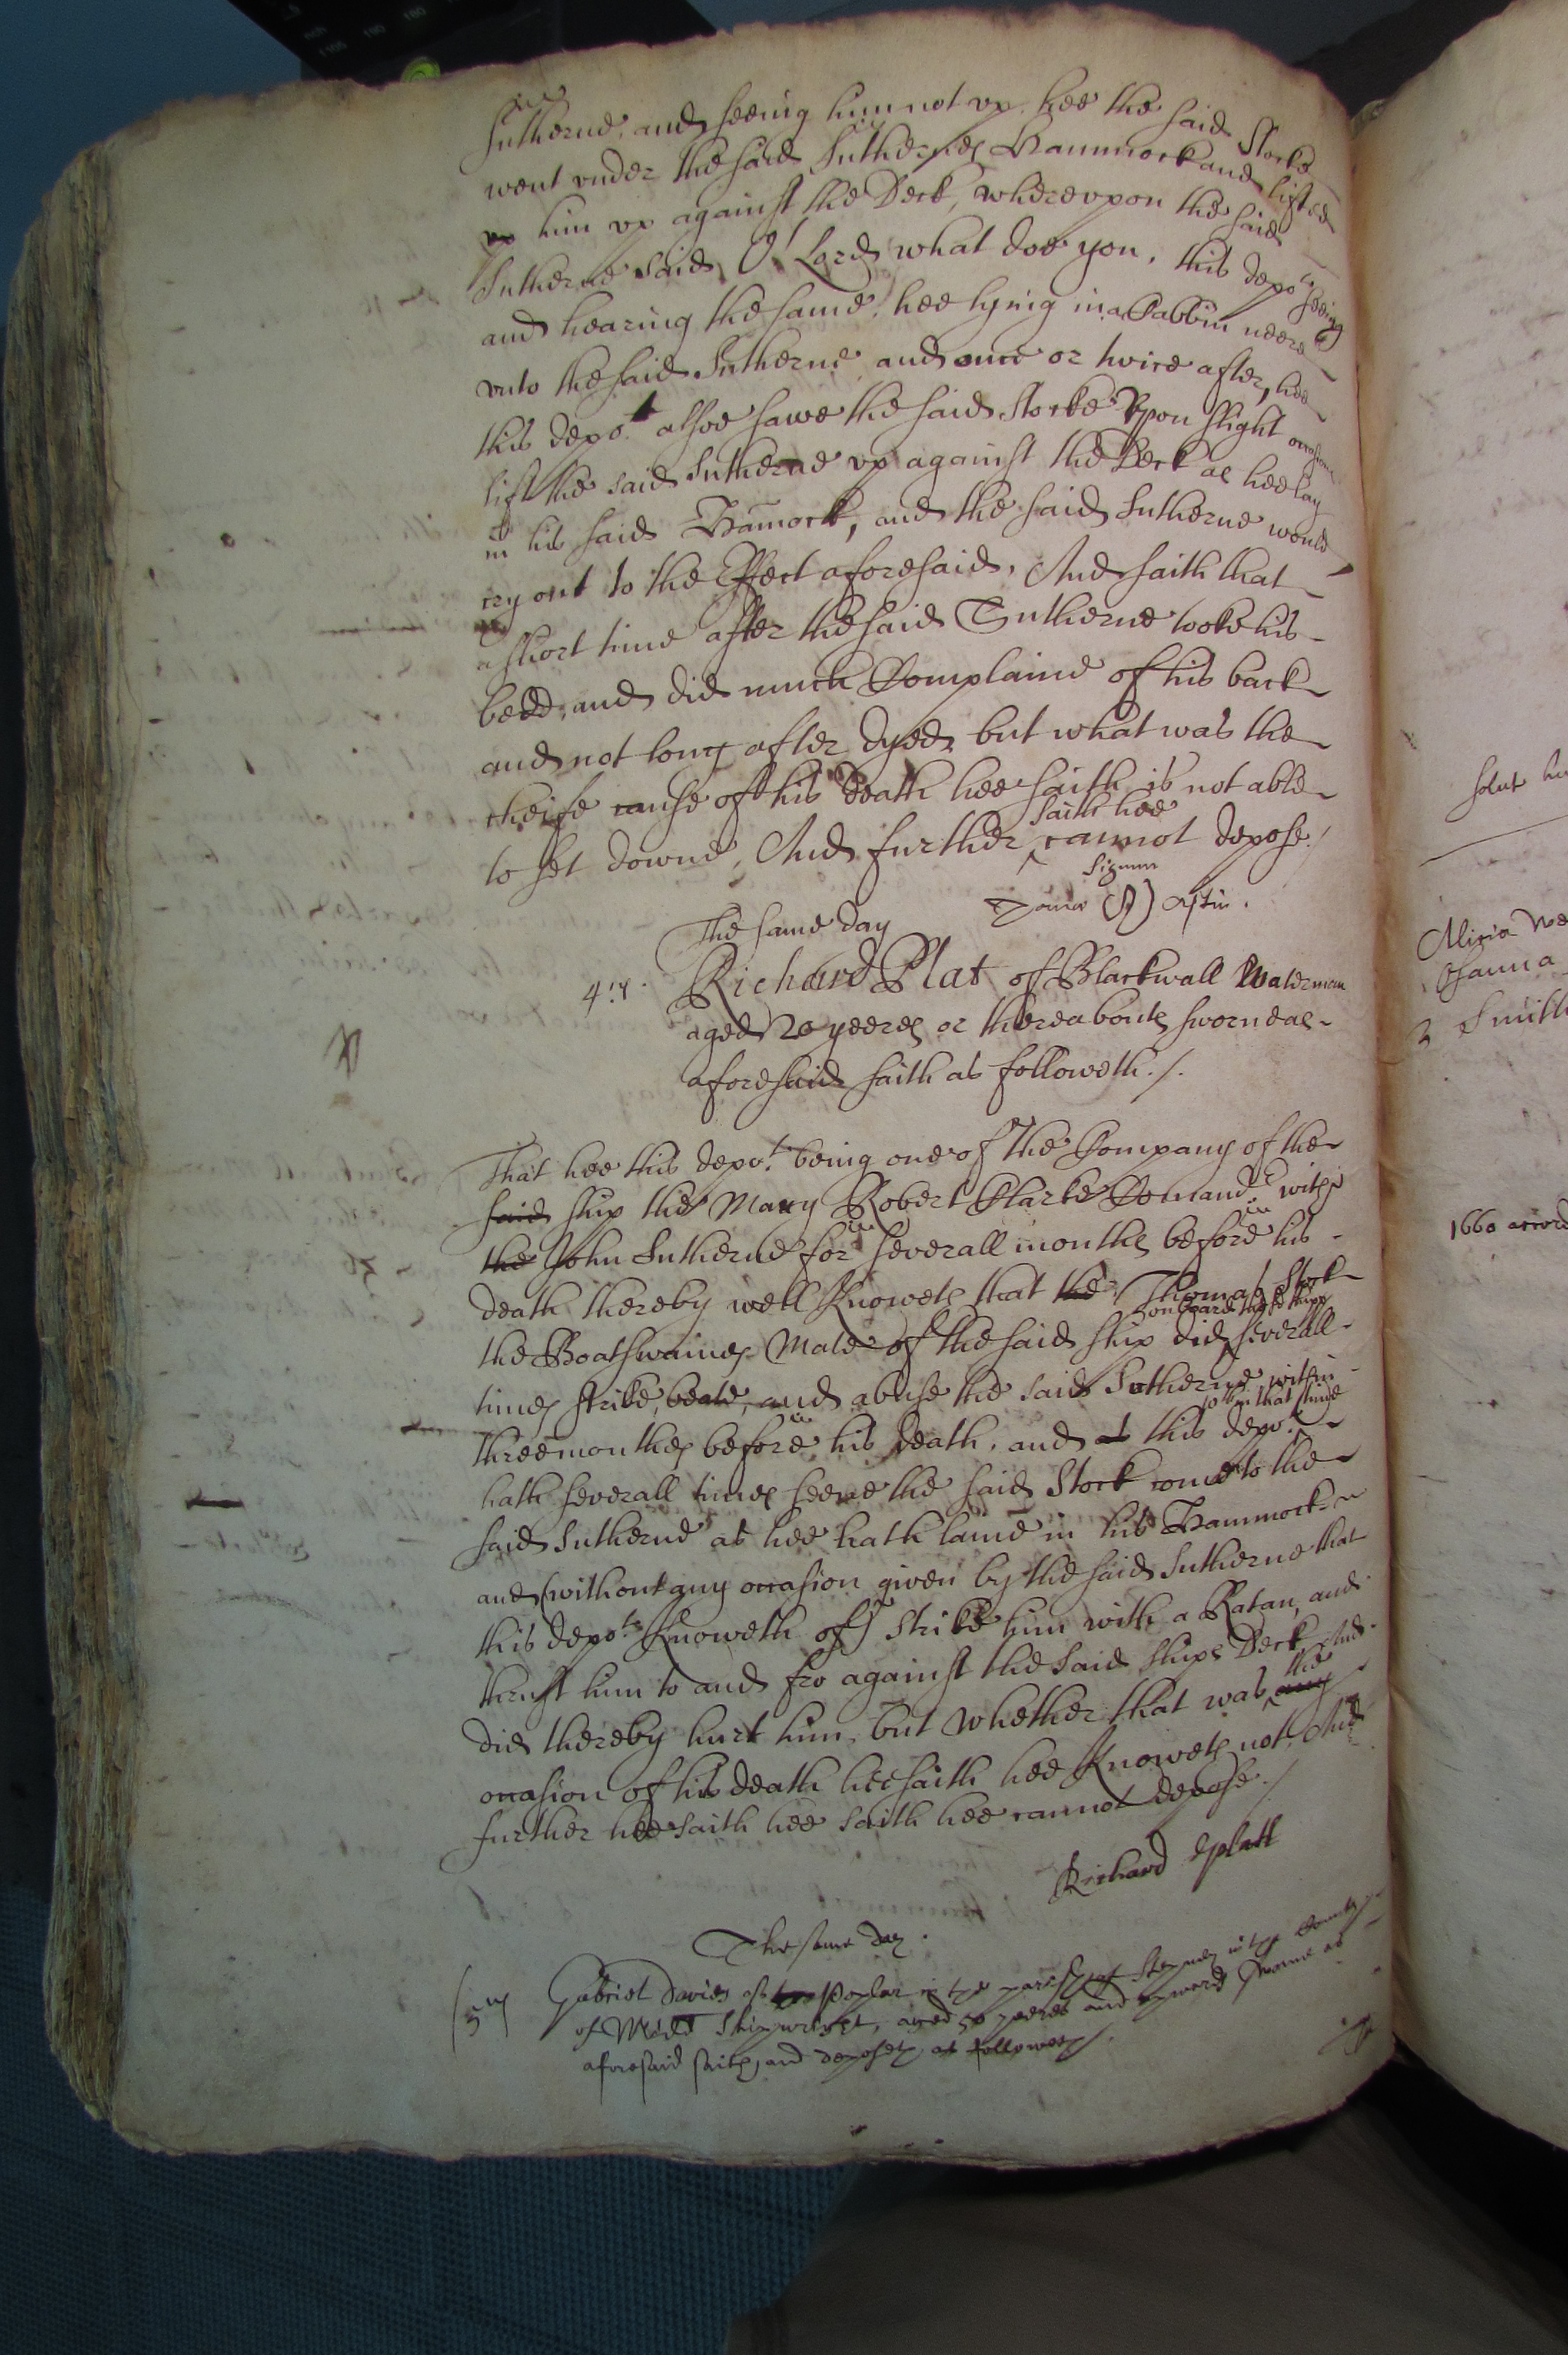 Sutherne, and seeing him not vp hee the said Stocke
went vnder the said Suthernes Hammock and lifted
vp him vp against the Deck, wherevpon the said
Sutherne said, O! Lord what doe you, this depot seeing
and hearing the same, hee lying in a Cabbin neere
vnto the said Sutherne and once or twice after, hee
this depot alsoe sawe the said Stocke Vpon slight occasions
lift the said Sutherne vp against the Deck as hee lay
in his said Hamock, and the said Sutherne would
cry out to the Effect aforesaid, And saith that
a short time after the said Sutherne tooke his
bedd, and did much Complaine of his back
and not long after dyed, but what was the
cheife cause of his death hee saith is not able
to set downe, And further saith hee cannot depose./
Signum
The same day
4:ty. Richard Plat of Blackwall Waterman
aged 20 yeeres or thereabouts sworne as
aforesaid saith as followeth./.
That hee this depot. being one of the Company of the
said ship the Mary Robert Clarke Comandr. with
the John Sutherne for severall months before his
death thereby well Knoweth that the Thomas Stock
the Boatswaines Mate of the said ship did on board the sd shipp severall
times strike, beate, and abuse the said Sutherne within
three monthes before his death, and at this depot.
hath severall times seene the said Stock come to the
said Sutherne as hee hath laine in his Hammock
and (without any occasion given by the said Sutherne that
this depot Knoweth of) strike him with a Ratan, and
thrust him to and fro against the said ships Deck, And
did thereby hurt him, but whether that was the any
occasion of his death hee saith hee Knoweth not. And
further hee saith hee saith hee cannot depose./
Richard Platt
The same day.
5ty Gabriel Davies of Poplar in the parish of Stepney in the County
of Midd Shipwright, aged 50 yeeres and upward sworne as
aforesaid saith, and deposeth as followeth/.
Alicia
Smith
1660